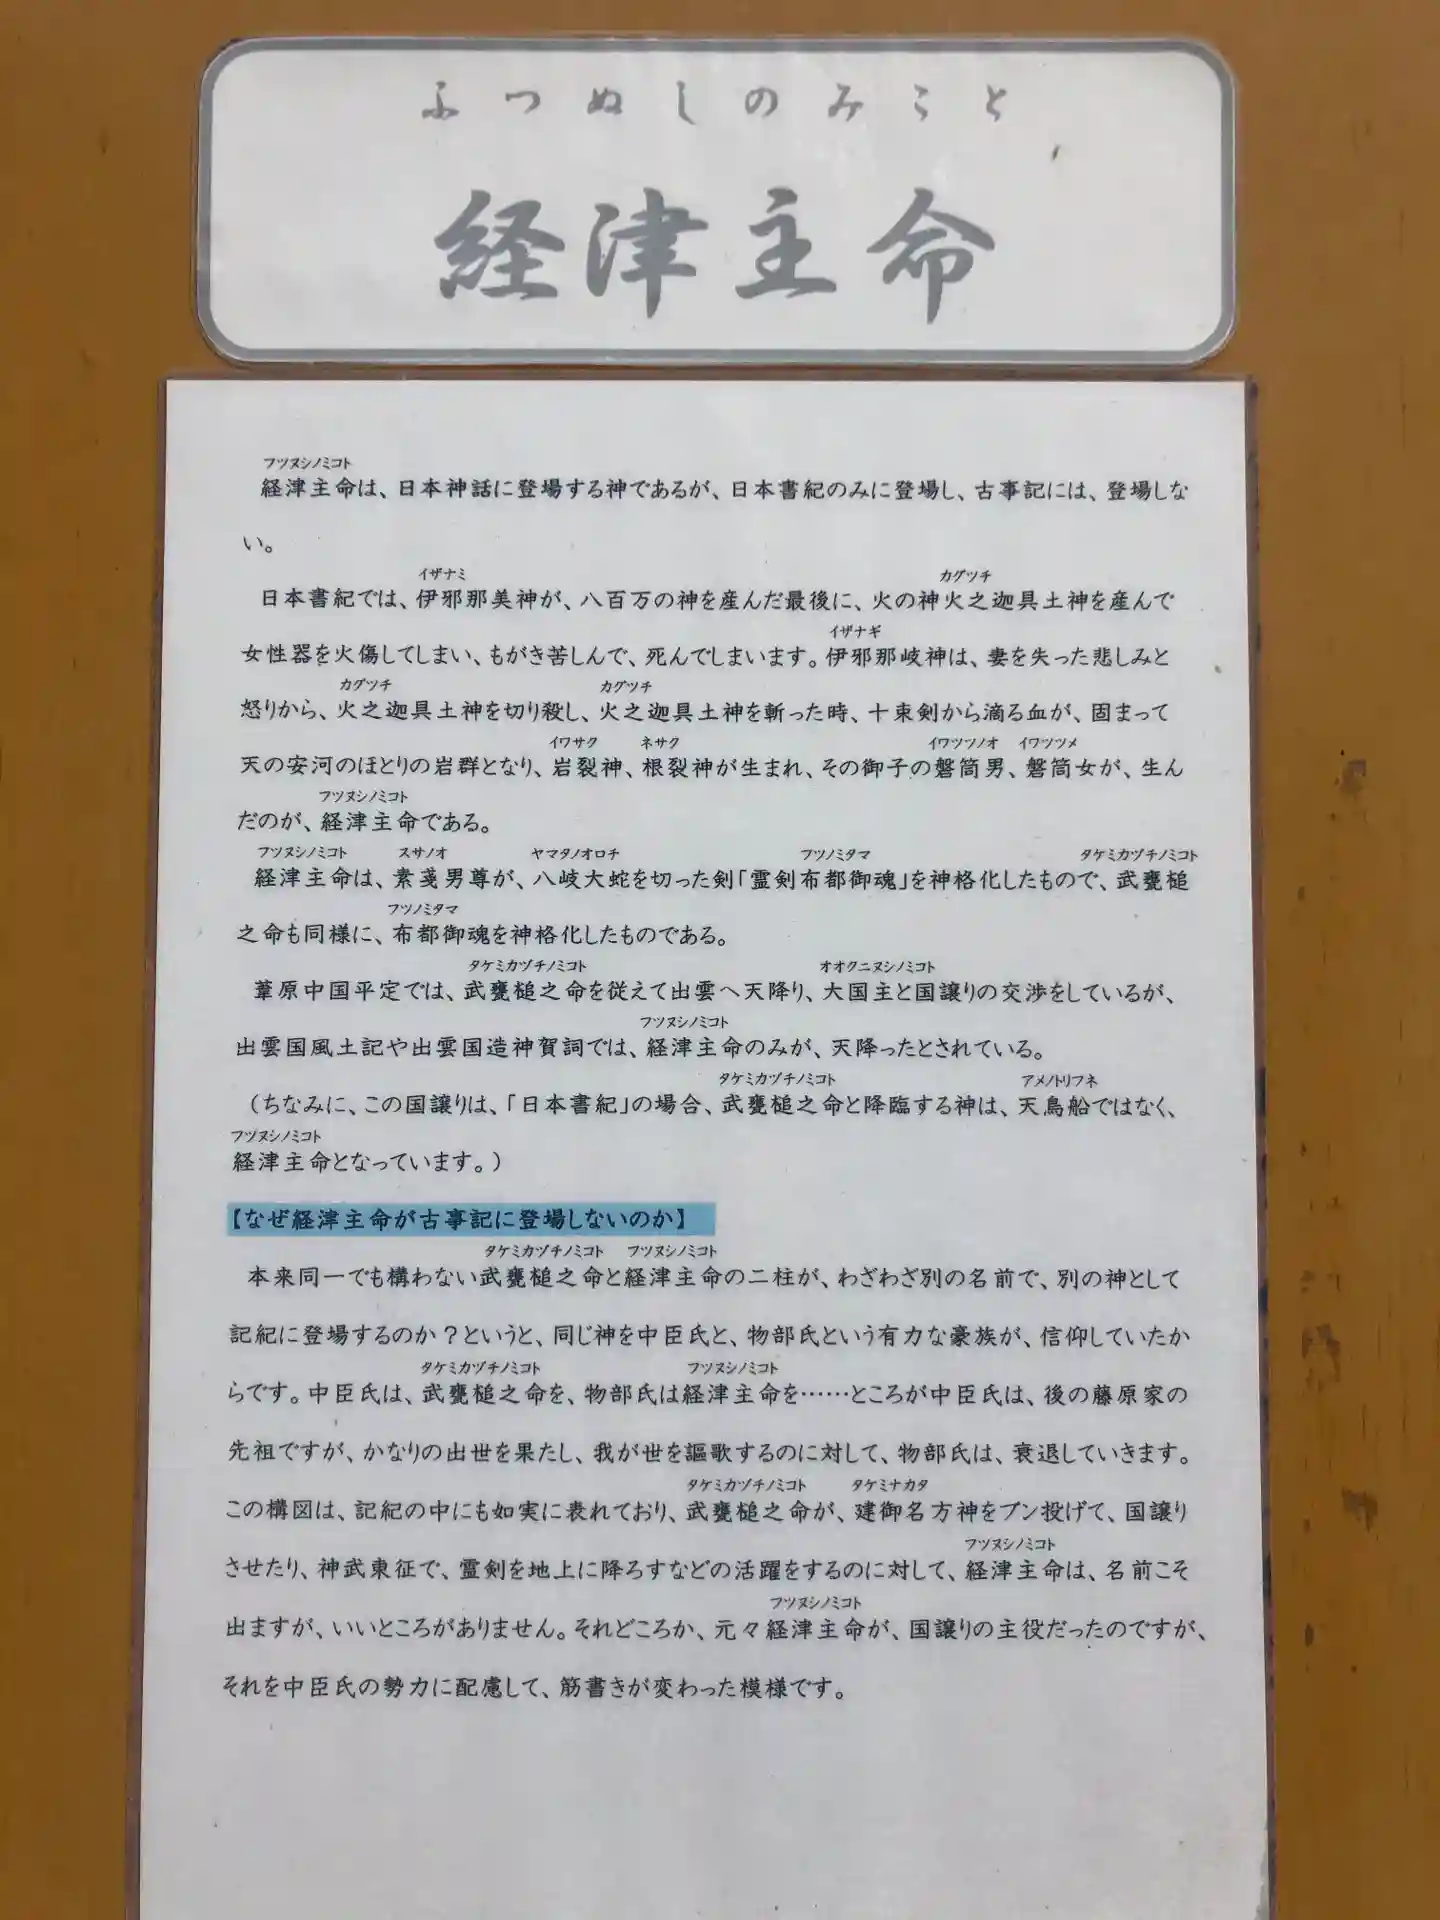 ふつぬしのみこと
経津主命
フツヌシノミコト
経津主命は、日本神話に登場する神であるが、日本書紀のみに登場し、古事記には、登場しな
い。
イザナミ カグツチ
日本書紀では、伊邪那美神が、八百万の神を産んだ最後に、火の神火之迦具土神を産んで
イザナギ
女性器を火傷してしまい、もがき苦しんで、死んでしまいます。伊邪那岐神は、妻を失った悲しみと
カグツチ カグツチ
怒りから、火之迦具土神を切り殺し、火之迦具土神を斬った時、十束剣から滴る血が、固まって
イワサク ネサク イワツツノオ イワツツメ
天の安河のほとりの岩群となり、岩裂神、根裂神が生まれ、その御子の磐筒男、磐筒女が、生ん
フツヌシノミコト
だのが、経津主命である。
フツヌシノミコト スサノオ ヤマタノオロチ フツノミタマ タケミカヅチノミコト
経津主命は、素戔男尊が、八岐大蛇を切った剣「霊剣布都御魂」を神格化したもので、武甕槌
フツノミタマ
之命も同様に、布都御魂を神格化したものである。
タケミカヅチノミコト オオクニヌシノミコト
葦原中国平定では、武甕槌之命を従えて出雲へ天降り、大国主と国譲りの交渉をしているが、
フツヌシノミコト
出雲国風土記や出雲国造神賀詞では、経津主命のみが、天降ったとされている。
タケミカヅチノミコト アメノトリフネ
（ちなみに、この国譲りは、「日本書紀」の場合、武甕槌之命と降臨する神は、天鳥船ではなく、
フツヌシノミコト
経津主命となっています。）
【なぜ経津主命が古事記に登場しないのか】
タケミカヅチノミコト フツヌシノミコト
本来同一でも構わない武甕槌之命と経津主命の二柱が、わざわざ別の名前で、別の神として
記紀に登場するのか？というと、同じ神を中臣氏と、物部氏という有力な豪族が、信仰していたか
タケミカヅチノミコト フツヌシノミコト
らです。中臣氏は、武甕槌之命を、物部氏は経津主命を……ところが中臣氏は、後の藤原家の
先祖ですが、かなりの出世を果たし、我が世を謳歌するのに対して、物部氏は、衰退していきます。
タケミカヅチノミコト タケミナカタ
この構図は、記紀の中にも如実に表れており、武甕槌之命が、建御名方神をブン投げて、国譲り
フツヌシノミコト
させたり、神武東征で、霊剣を地上に降ろすなどの活躍をするのに対して、経津主命は、名前こそ
フツヌシノミコト
出ますが、いいところがありません。それどころか、元々経津主命が、国譲りの主役だったのですが、
それを中臣氏の勢力に配慮して、筋書きが変わった模様です。